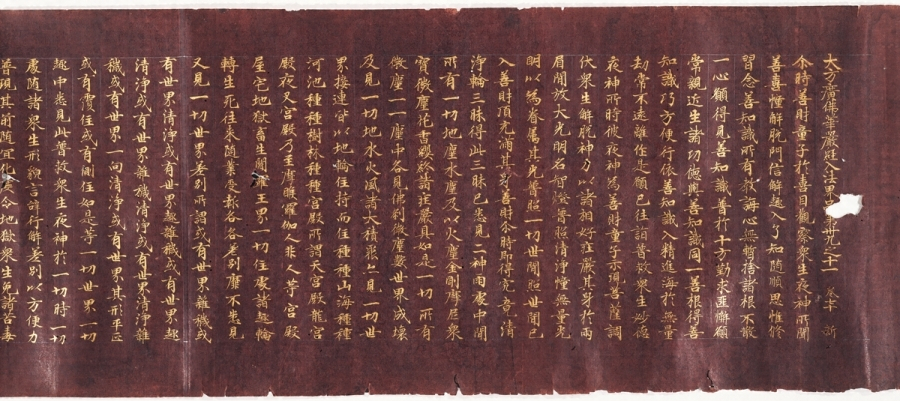 大方廣佛華嚴經入法界品卅九之十一　卷七十　新
尒時善財童子於喜目觀察衆生夜神所聞
普喜幢解脫門信解趣入了知隨順思惟修
習念善知識所有教誨心無暫捨諸根不散
一心願見善知識普於十方勤求匪懈願
常親近生諸功德與善知識同一善根得善
知識巧方便行依善知識入精進海於無量
劫常不遠離作是願已往詣普救衆生妙德
夜神所時彼夜神為善財童子示現菩薩調
伏衆生解脫神力以諸相好莊嚴其身於兩
眉間放大光明名智燈普照清淨幢無量光
明以為眷屬其光普照一切世間照世間已
入善財頂充滿其身善財尒時即得究竟清
淨輪三昧得此三昧已悉見二神兩處中間
所有一切地塵水塵及以火塵金剛摩尼衆
寶微塵花香瓔珞諸莊嚴具如是一切所有
微塵一一塵中各見佛剎微塵數世界成壞
及見一切地水火風諸大積聚亦見一切世
界接連皆以地輪任持而住種種山海種種
河池種種樹林種種宮殿所謂天宮殿龍宮
殿夜叉宮殿乃至摩睺羅伽人非人等宮殿
屋宅地獄畜生閻羅王界一切住處諸趣輪
轉生死往來隨業受報各各差別靡不悉見
又見一切世界差別所謂或有世界雜穢或
有世界清淨或有世界趣雜穢或有世界趣
清淨或有世界雜穢清淨或有世界清淨雜
穢或有世界一向清淨或有世界其形平正
或有覆住或有側住如是等一切世界一切
趣中悉見此普救衆生夜神於一切時一切
處隨諸衆生形貌言辭行解差別以方便力
普現其前隨宜化度令地獄衆生免諸苦毒